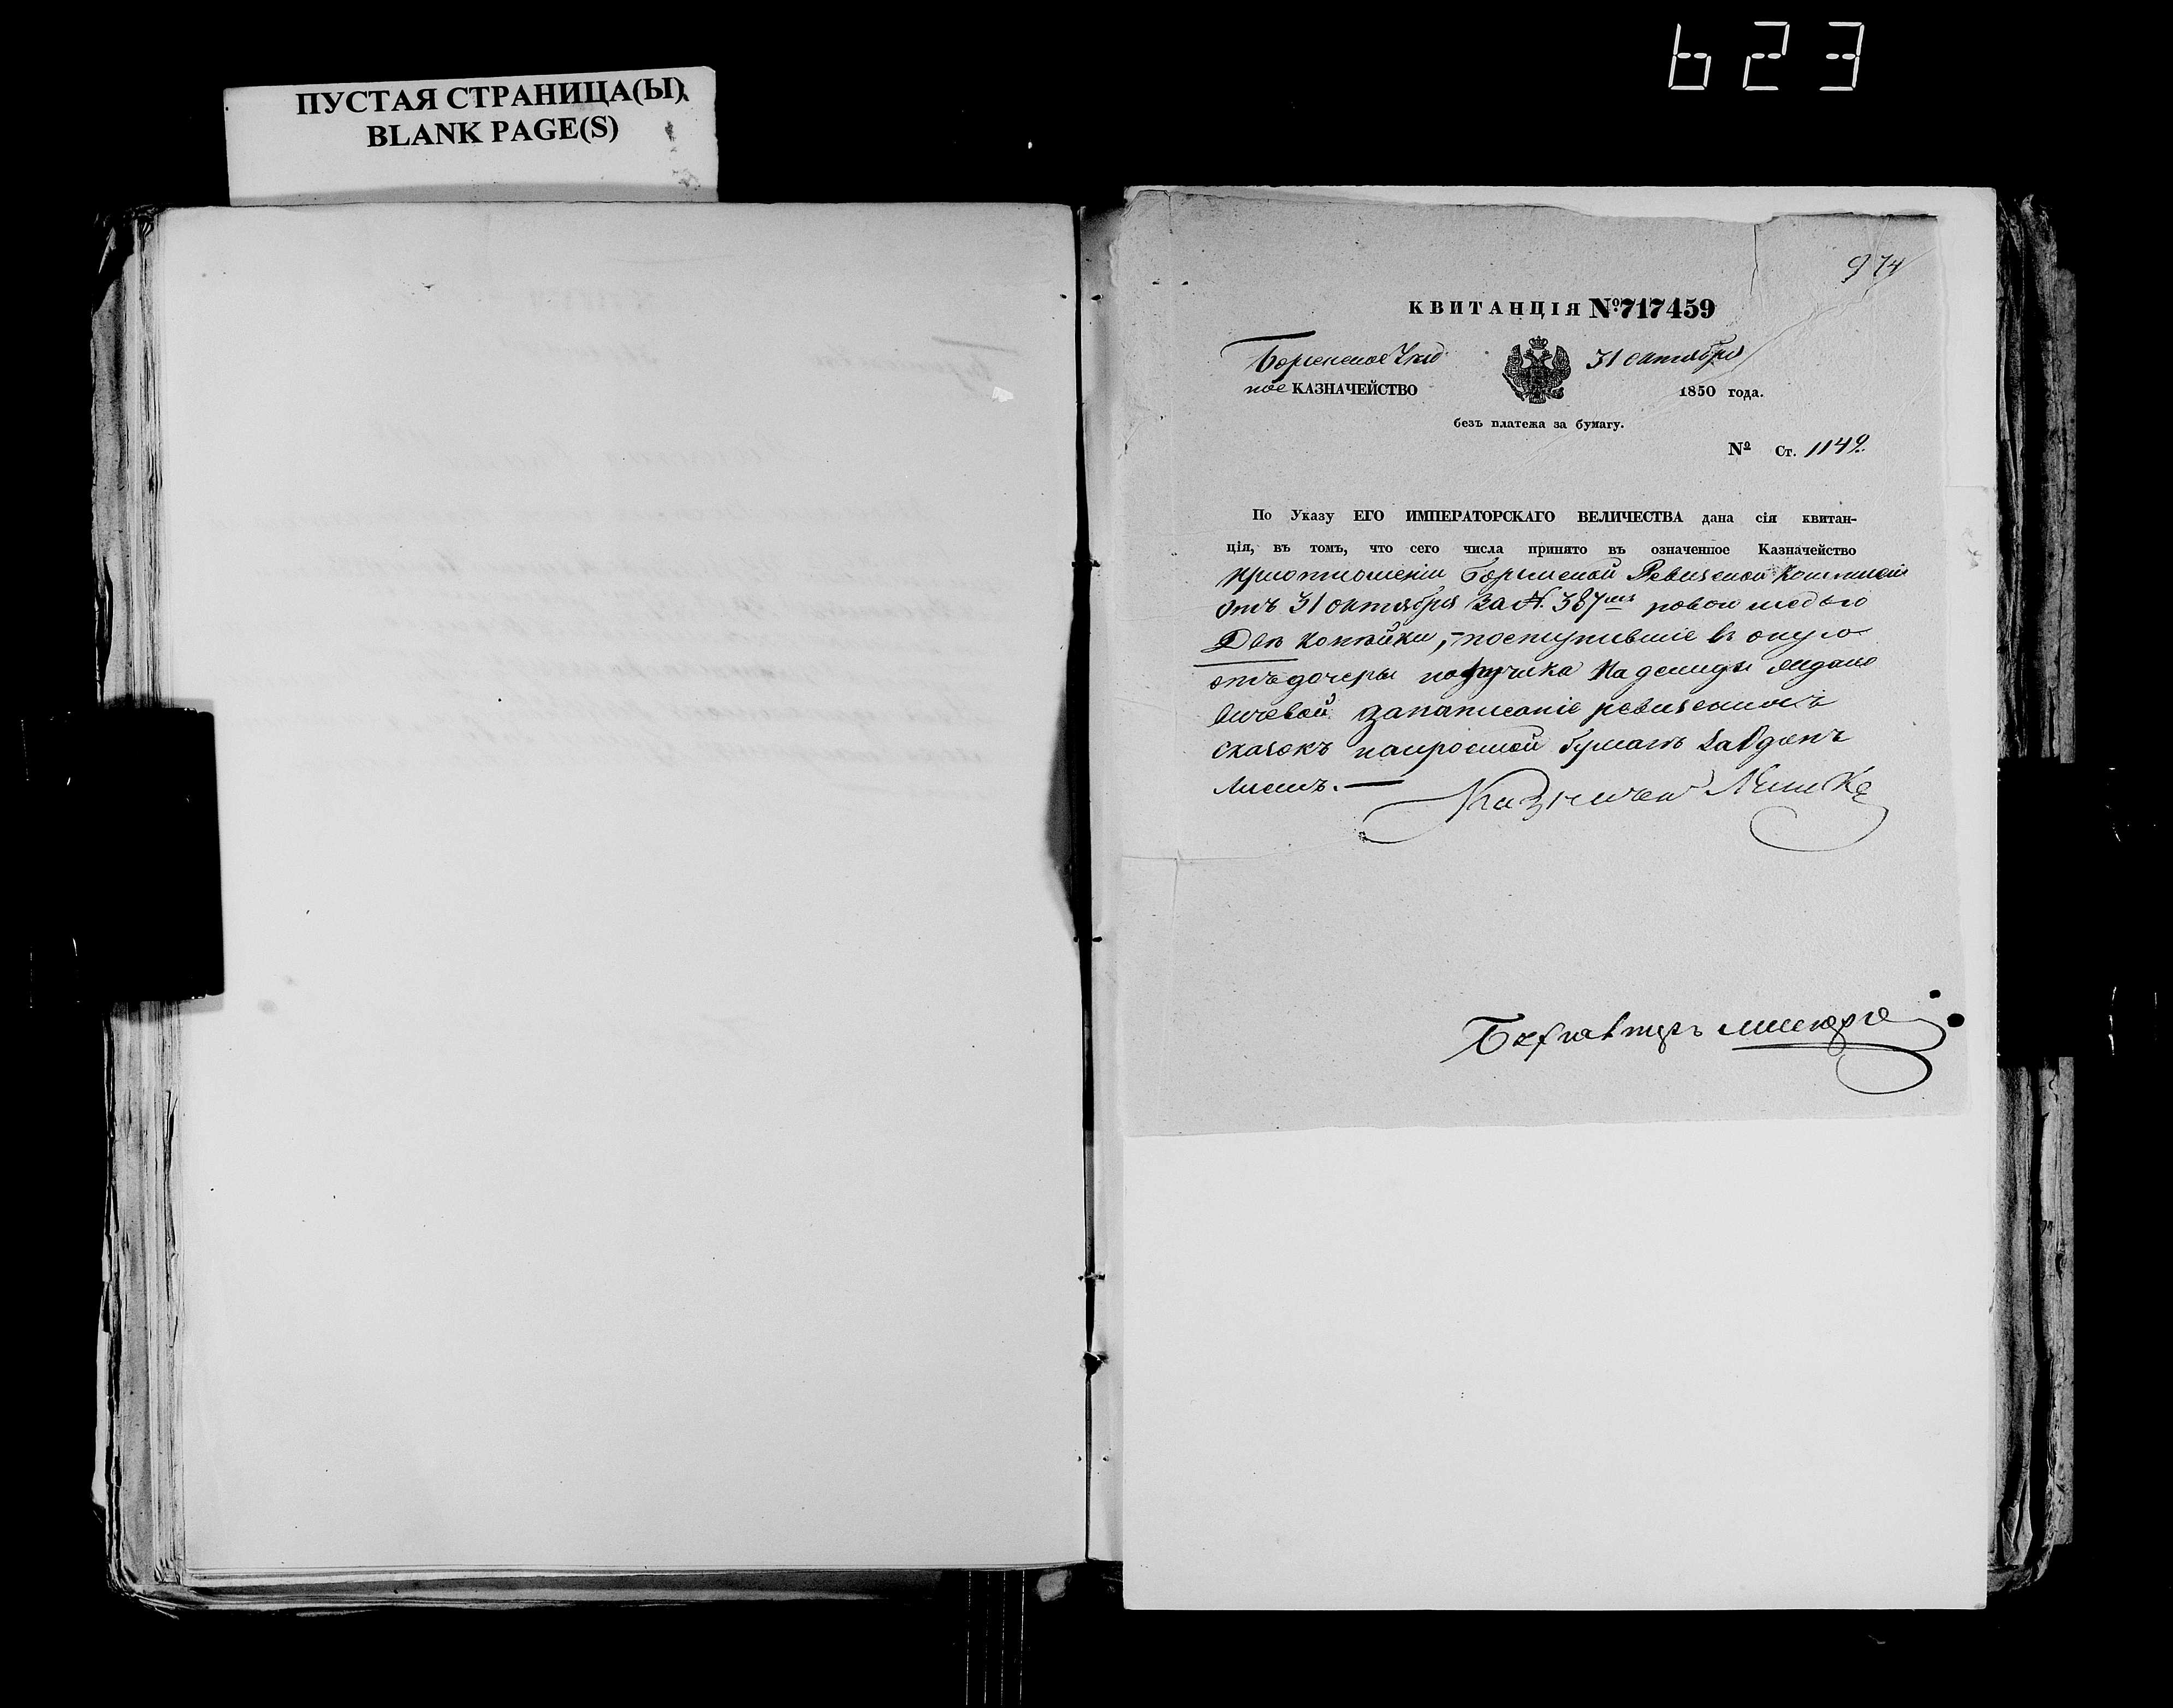 623
ПУСТАЯ СТРАНИЦА(Ы)
BLANK PAGE(S)
974
КВИТАНЦІЯ № 717459
Борзенское Уѣзд
ное КАЗНАЧЕЙСТВО
31 октября
1850 года.
безъ платежа за бумагу.
№ Ст. 1149.
По Указу ЕГО ИМПЕРАТОРСКАГО ВЕЛИЧЕСТВА дана сія квитан-
ція, въ томъ, что сего числа принято въ означенное Казначейство
приотношеніи Борзенской Ревизской Коммисіи
отъ 31 октября за №. 387мъ новою медью
Две копѣйки, поступившіе в оную
отъ дочеры поручика Надежды
запаписаніе ревизскихъ
сказокъ напростой бумагѣ заодинъ
листъ.
Казначей
Бухгалтеръ